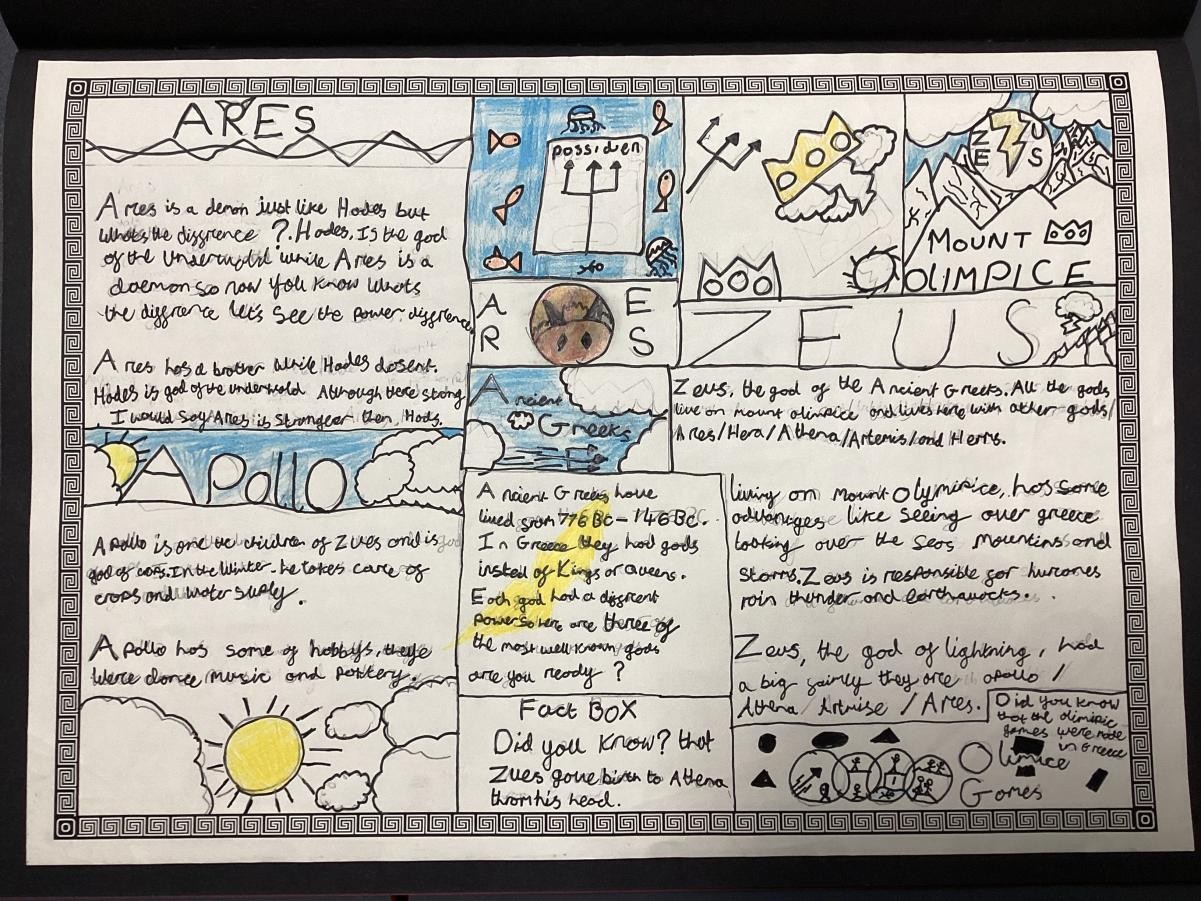 ARES
Ares is a demon just like Hades but
whats the diffrence ?. Hades. Is the god
of the while Ares is a
daemon so now you know whats
the diffrence let's see the power diffrence
Ares has a brother while Hades dosent.
Hades is god of the Although there strong
I would say Ares is strongeer then Hads.
Apollo
Apollo is one the children of Zues and is god
god of In the winter. he takes care of
crops and water suply.
Apollo has some of hobbys, theye
were dance music and pottery.
possiden
A E
R S
Ancient
Greeks
Ancient Greeks have
lived from 776 BC - 146 BC.
In Greece they had gods
insted of Kings or Queens.
Each god had a diffrent
power so here are three of
the most well known gods
are you ready ?
Fact Box
Did you know? that
Zues gave birth to Athena
throm his head.
ZE US
MOUNT
OLIMPICE
ZEUS
Zeus, the god of the Ancient Greeks. All the gods
live on mount olimpice and lives here with other gods/
Ares/Hera/Athena/Artemis/and Herms.
living on mount olympice, has some
advantages like seeing over greece
looking over the seas mountins and
storms. Zeus is responsible for
rain thunder and
Zeus, the god of lightning, had
a big they are apollo /
Athena / Artmise / Ares.
Did you know
that the olimpic
games were made
in Greece
Olimice
Games